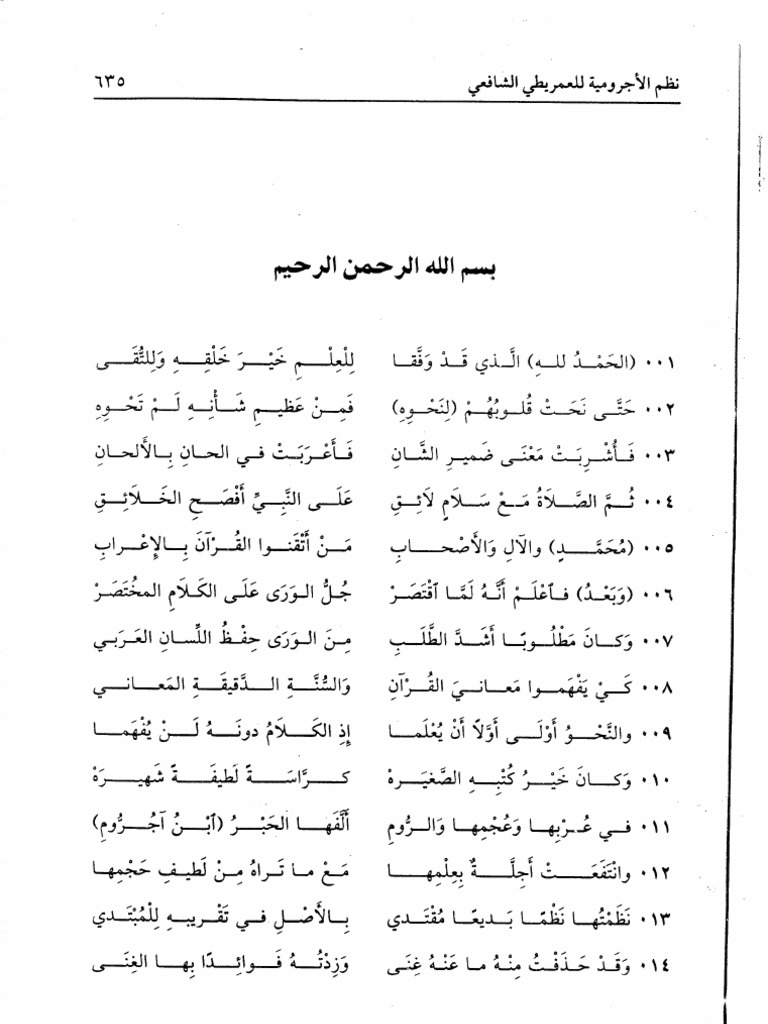 نظم الأجرومية للعمريطي الشافعي ٦٣٥
بسم الله الرحمن الرحيم
٠٠١ (الحَمْدُ للهِ) الَّذي قَدْ وَفَّقا لِلْعِلْمِ خَيْرَ خَلْقِهِ وَلِلتُّقَى
٠٠٢ حَتَّى نَحَتْ قُلوبُهُمْ (لِنَحْوِهِ) فَمِنْ عَظيمِ شَأْنِهِ لَمْ تَحْوِهِ
٠٠٣ فَأُشْرِبَتْ مَعْنَى ضَميرِ الشَّانِ فَأَعْرَبَتْ في الحانِ بِالأَلْحانِ
٠٠٤ ثُمَّ الصَّلاَةُ مَعْ سَلاَمٍ لاَئِقِ عَلَى النَّبِيِّ أَفْصَحِ الخَلاَئِقِ
٠٠٥ (مُحَمَّدٍ) والآلِ وَالأَصْحابِ مَنْ أَتْقَنوا القُرْآنَ بِالإِعْرابِ
٠٠٦ (وَبَعْدُ) فَٱعْلَمْ أَنَّهُ لَمَّا ٱقْتَصَرْ جُلُّ الوَرَى عَلَى الكَلاَمِ المخْتَصَرْ
٠٠٧ وَكانَ مَطْلُوبًا أَشَدَّ الطَّلَبِ مِنَ الوَرَى حِفْظُ اللِّسانِ العَرَبي
٠٠٨ كَيْ يَفْهَموا مَعانيَ القُرْآنِ وَالسُّنَّةِ الدَّقيقَةِ المَعاني
٠٠٩ والنَّحْوُ أَوْلَى أَوَّلاً أَنْ يُعْلَما إِذِ الكَلاَمُ دونَهُ لَنْ يُفْهَما
٠١٠ وَكانَ خَيْرُ كُتْبِهِ الصَّغيَرهْ كُرَّاسَةً لَطيفَةً شَهيرَهْ
٠١١ في عُرْبِها وَعُجْمِها وَالرُّومِ أَلَّفَها الحَبْرُ (ٱبْنُ آجُرُّومِ)
٠١٢ وانْتَفَعَتْ أَجِلَّةٌ بِعِلْمِها مَعْ ما تَراهُ مِنْ لَطيفِ حَجْمِها
٠١٣ نَظَمْتُها نَظْمًا بَديعًا مُقْتَدي بِالأَصْلِ في تَقْريبِهِ لِلْمُبْتَدي
٠١٤ وَقَدْ حَذَفْتُ مِنْهُ ما عَنْهُ غِنَى وَزِدْتُهُ فَوائِدًا بِها الغِنَى